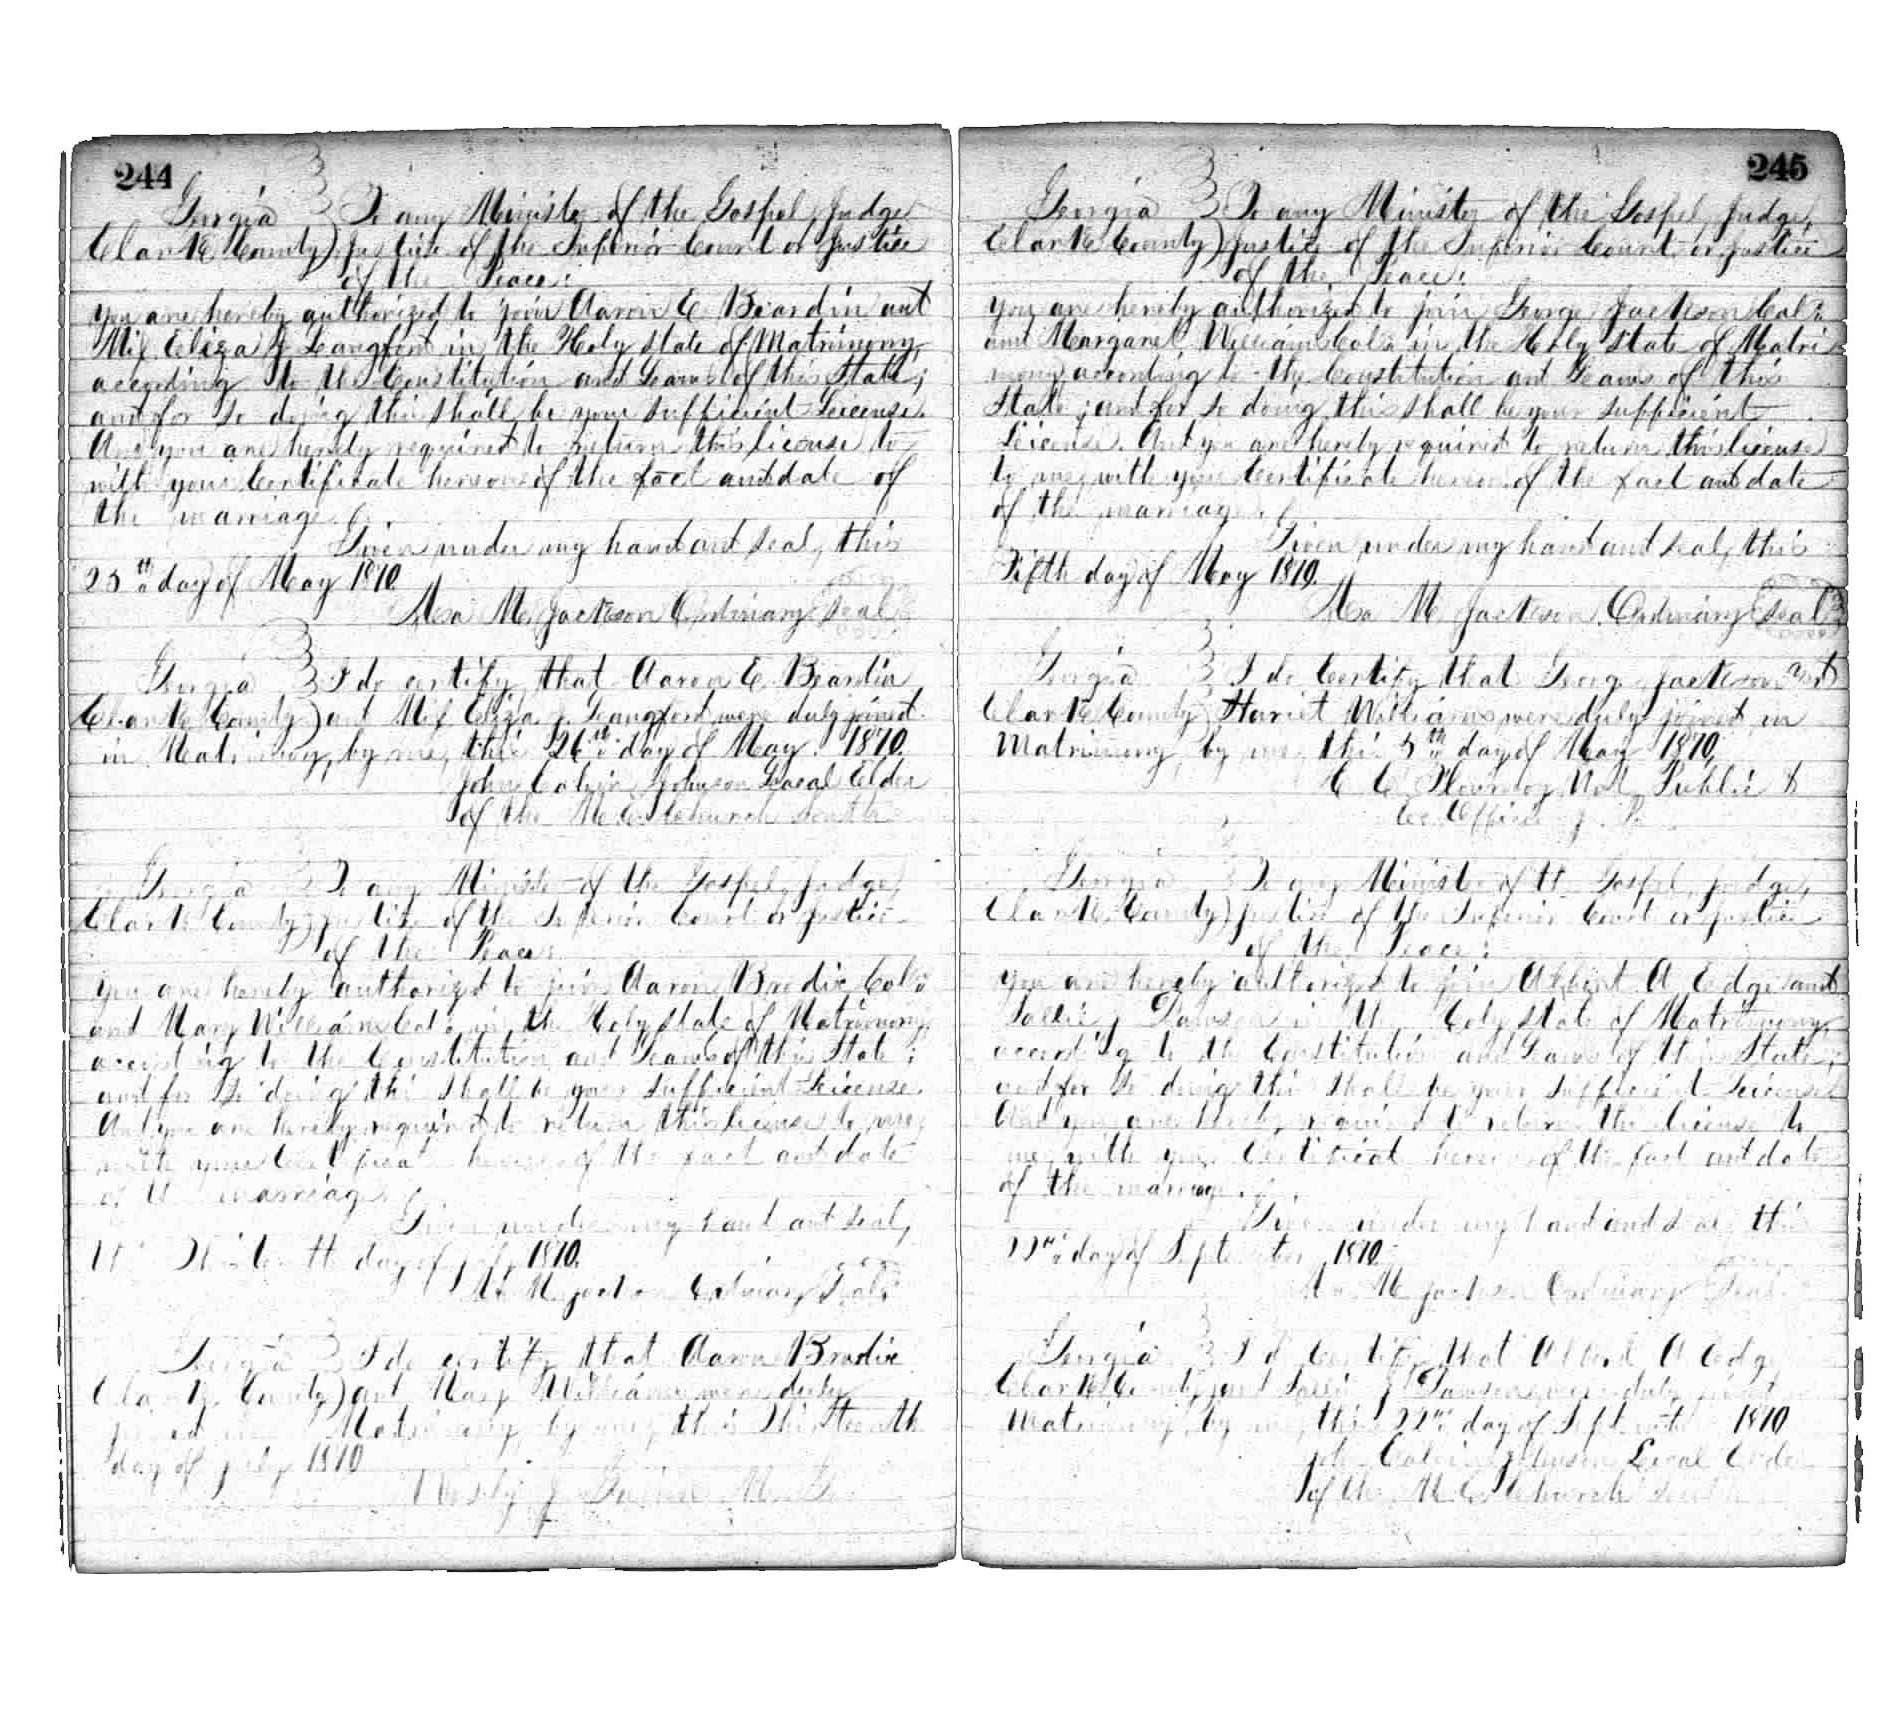 244
Georgia To any Minister of the Gospel, Judge,
Clarke County) Justice of the Inferior Court or Justice
of the Peace:
you are hereby authorized to join Aaron E. Beardin and
Miss Eliza J. Langford in the Holy State of Matrimony,
according to the Constitution and Laws of this State;
and for so doing this shall be your sufficient License.
And you are hereby required to return this license to
with your Certificate hereon of the fact and date of
the marriage.
Given under my hand and seal, this
25th day of May 1870.
M. Jackson Ordinary Seal
Georgia I do certify that Aaron E. Beardin
Clarke County) and Miss Eliza J. Langford were duly joined
in Matrimony, by me, this 26th day of May 1870.
John Calvin Johnson Local Elder
of the M. E. Church South
Georgia To any Minister of the Gospel, Judge,
Clarke County) Justice of the Inferior Court or Justice
of the Peace:
you are hereby authorized to join Aaron Brodie Cold
and Mary Williams Cold, in the Holy State of Matrimony,
according to the Constitution and Laws of this State;
and for so doing this shall be your sufficient License.
And you are hereby required to return this license to me,
with your Certificate hereon of the fact and date
of the marriage.
Given under my hand and seal,
day of July 1870.
M. Jackson Ordinary Seal
Georgia I do certify that Aaron Brodie
Clarke County) and Mary Williams were duly
joined in Matrimony by me, this Thirteenth
day of July 1870
J.
245
Georgia To any Minister of the Gospel, Judge,
Clarke County) Justice of the Inferior Court or Justice
of the Peace:
you are hereby authorized to join George Jackson Cold
and Margaret Williams Cold in the Holy State of Matri-
mony according to the Constitution and Laws of this
State; and for so doing this shall be your sufficient
License. And you are hereby required to return this license
to me, with your Certificate hereon of the fact and date
of the marriage.
Given under my hand and seal, this
Fifth day of May 1870.
M. Jackson Ordinary Seal
Georgia I do Certify that George Jackson and
Clarke County) Hariet Williams were duly joined in
Matrimony by me this 5th day of May 1870,
Not. Public &
Ex. Officio J. P.
Georgia To any Minister of the Gospel, Judge,
Clarke County) Justice of the Inferior Court or Justice
of the Peace:
you are hereby authorized to join Albert A. Edge and
Sallie J. Dawson in the Holy State of Matrimony,
according to the Constitution and Laws of this State;
and for so doing this shall be your sufficient License
And you are hereby required to return this license to
me, with your Certificate hereon of the fact and date
of the marriage.
Given under my hand and seal, this
22nd day of September 1870
M. Jackson Ordinary Seal
Georgia I do Certify that Albert A. Edge
Clarke County) and Sallie J. Dawson were duly joined in
Matrimony by me, this 22nd day of September 1870
John Calvin Johnson Local Elder
of the M. E. Church South